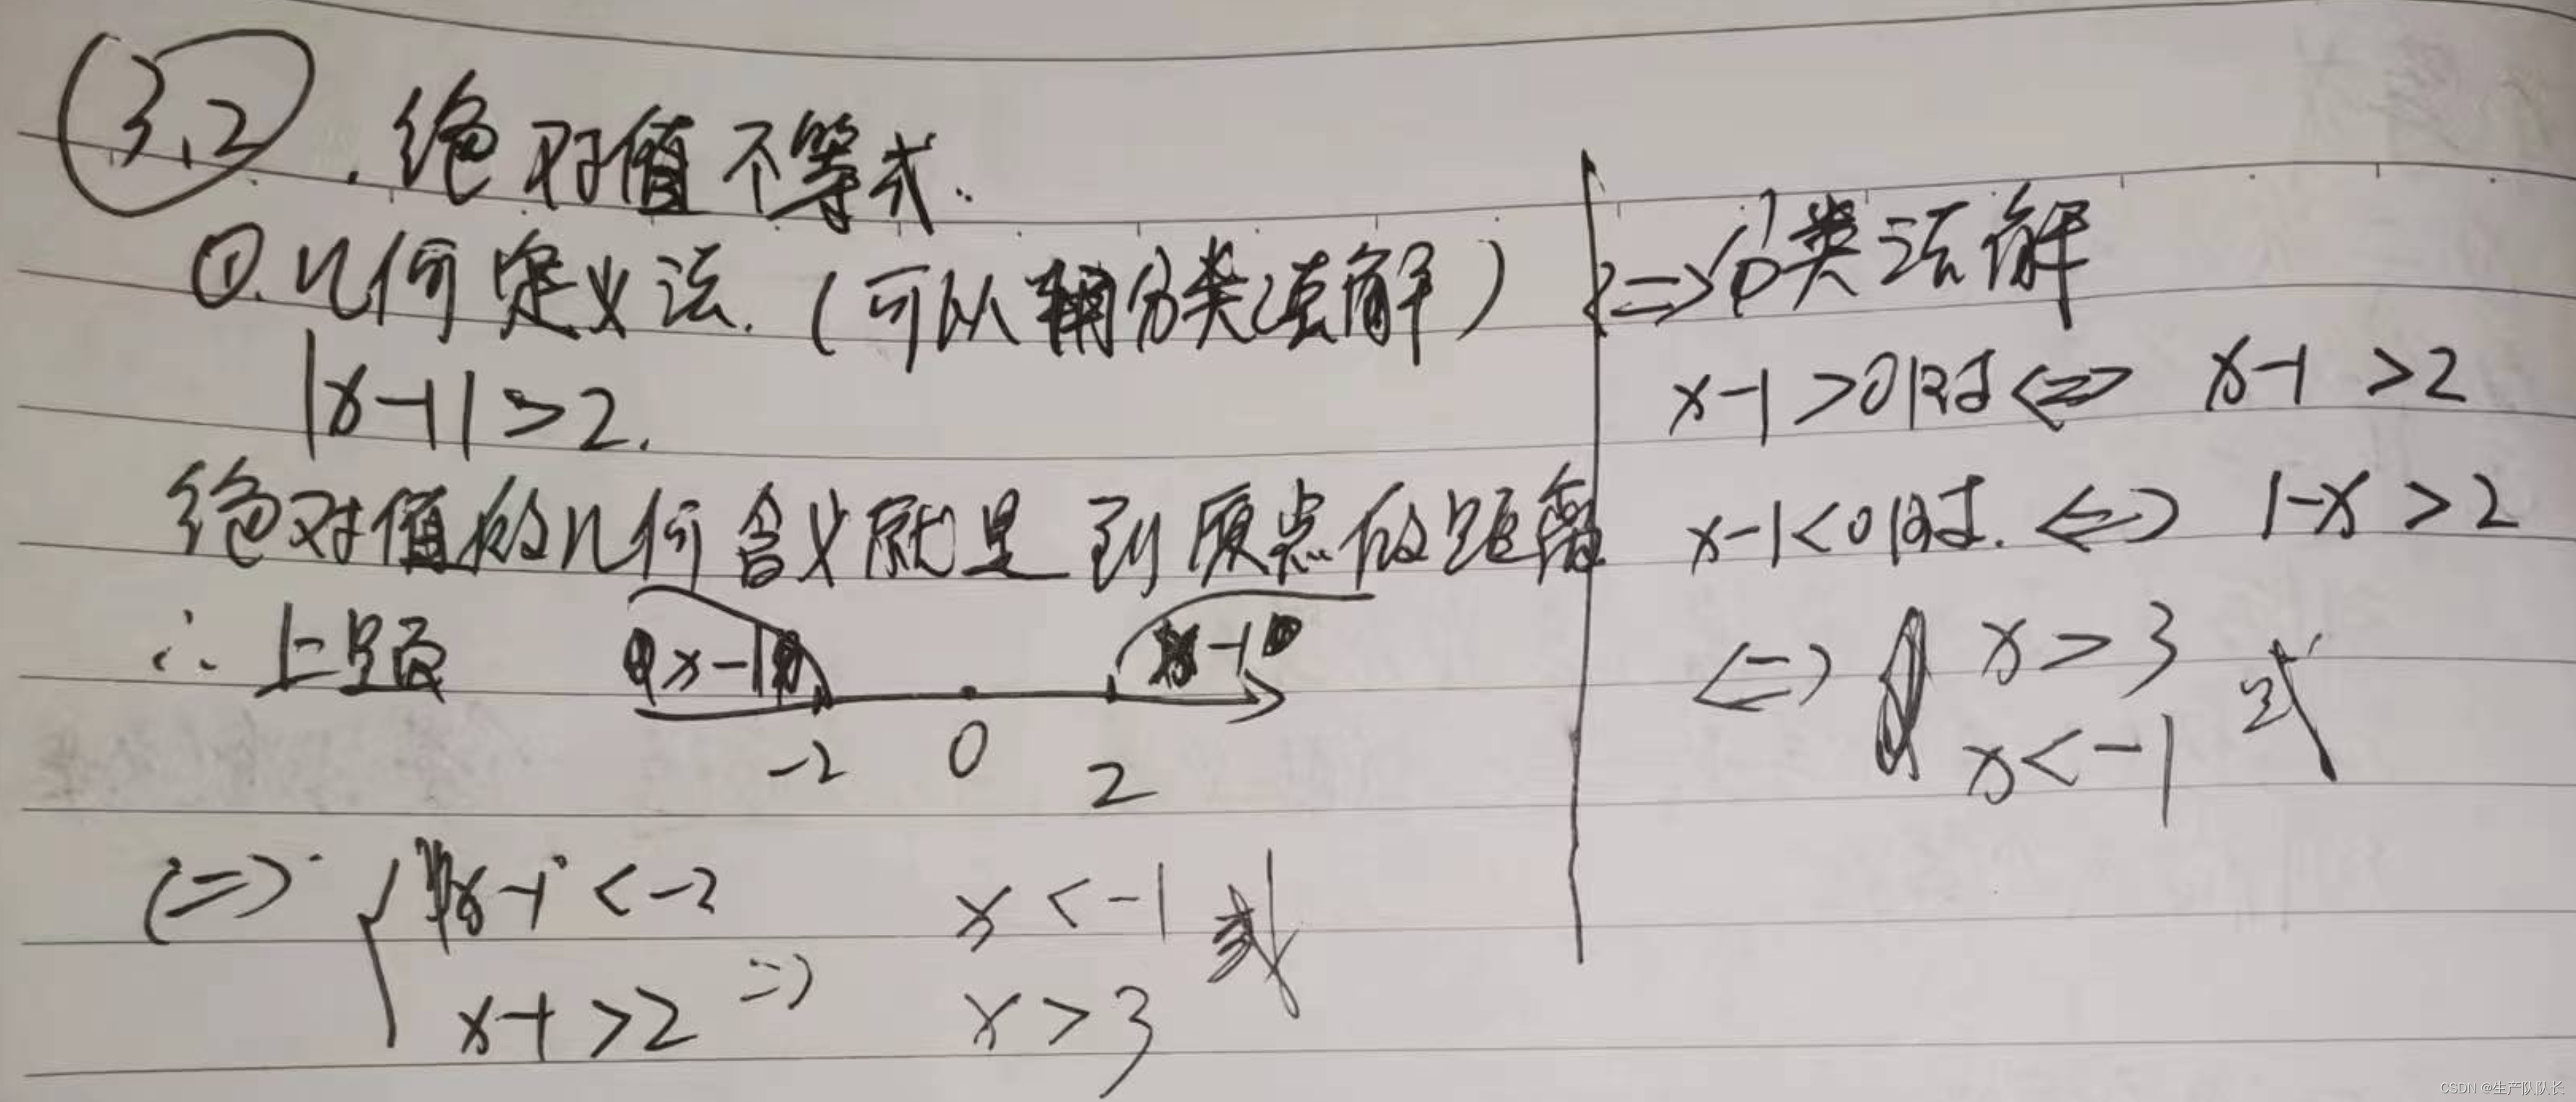 3.2. 绝对值不等式.
①.几何定义法.(可以用分类法解)
|x-1|>2.
绝对值的几何含义就是到原点的距离
∴上题 x-1 x-1
-2 0 2
<=> { x-1 < -2 x < -1 或
x-1 > 2 => x > 3
<=>分类法解
x-1 >0时<=> x-1 >2
x-1<0时. <=> 1-x > 2
<=> x > 3 或
x < -1
CSDN @生产队队长